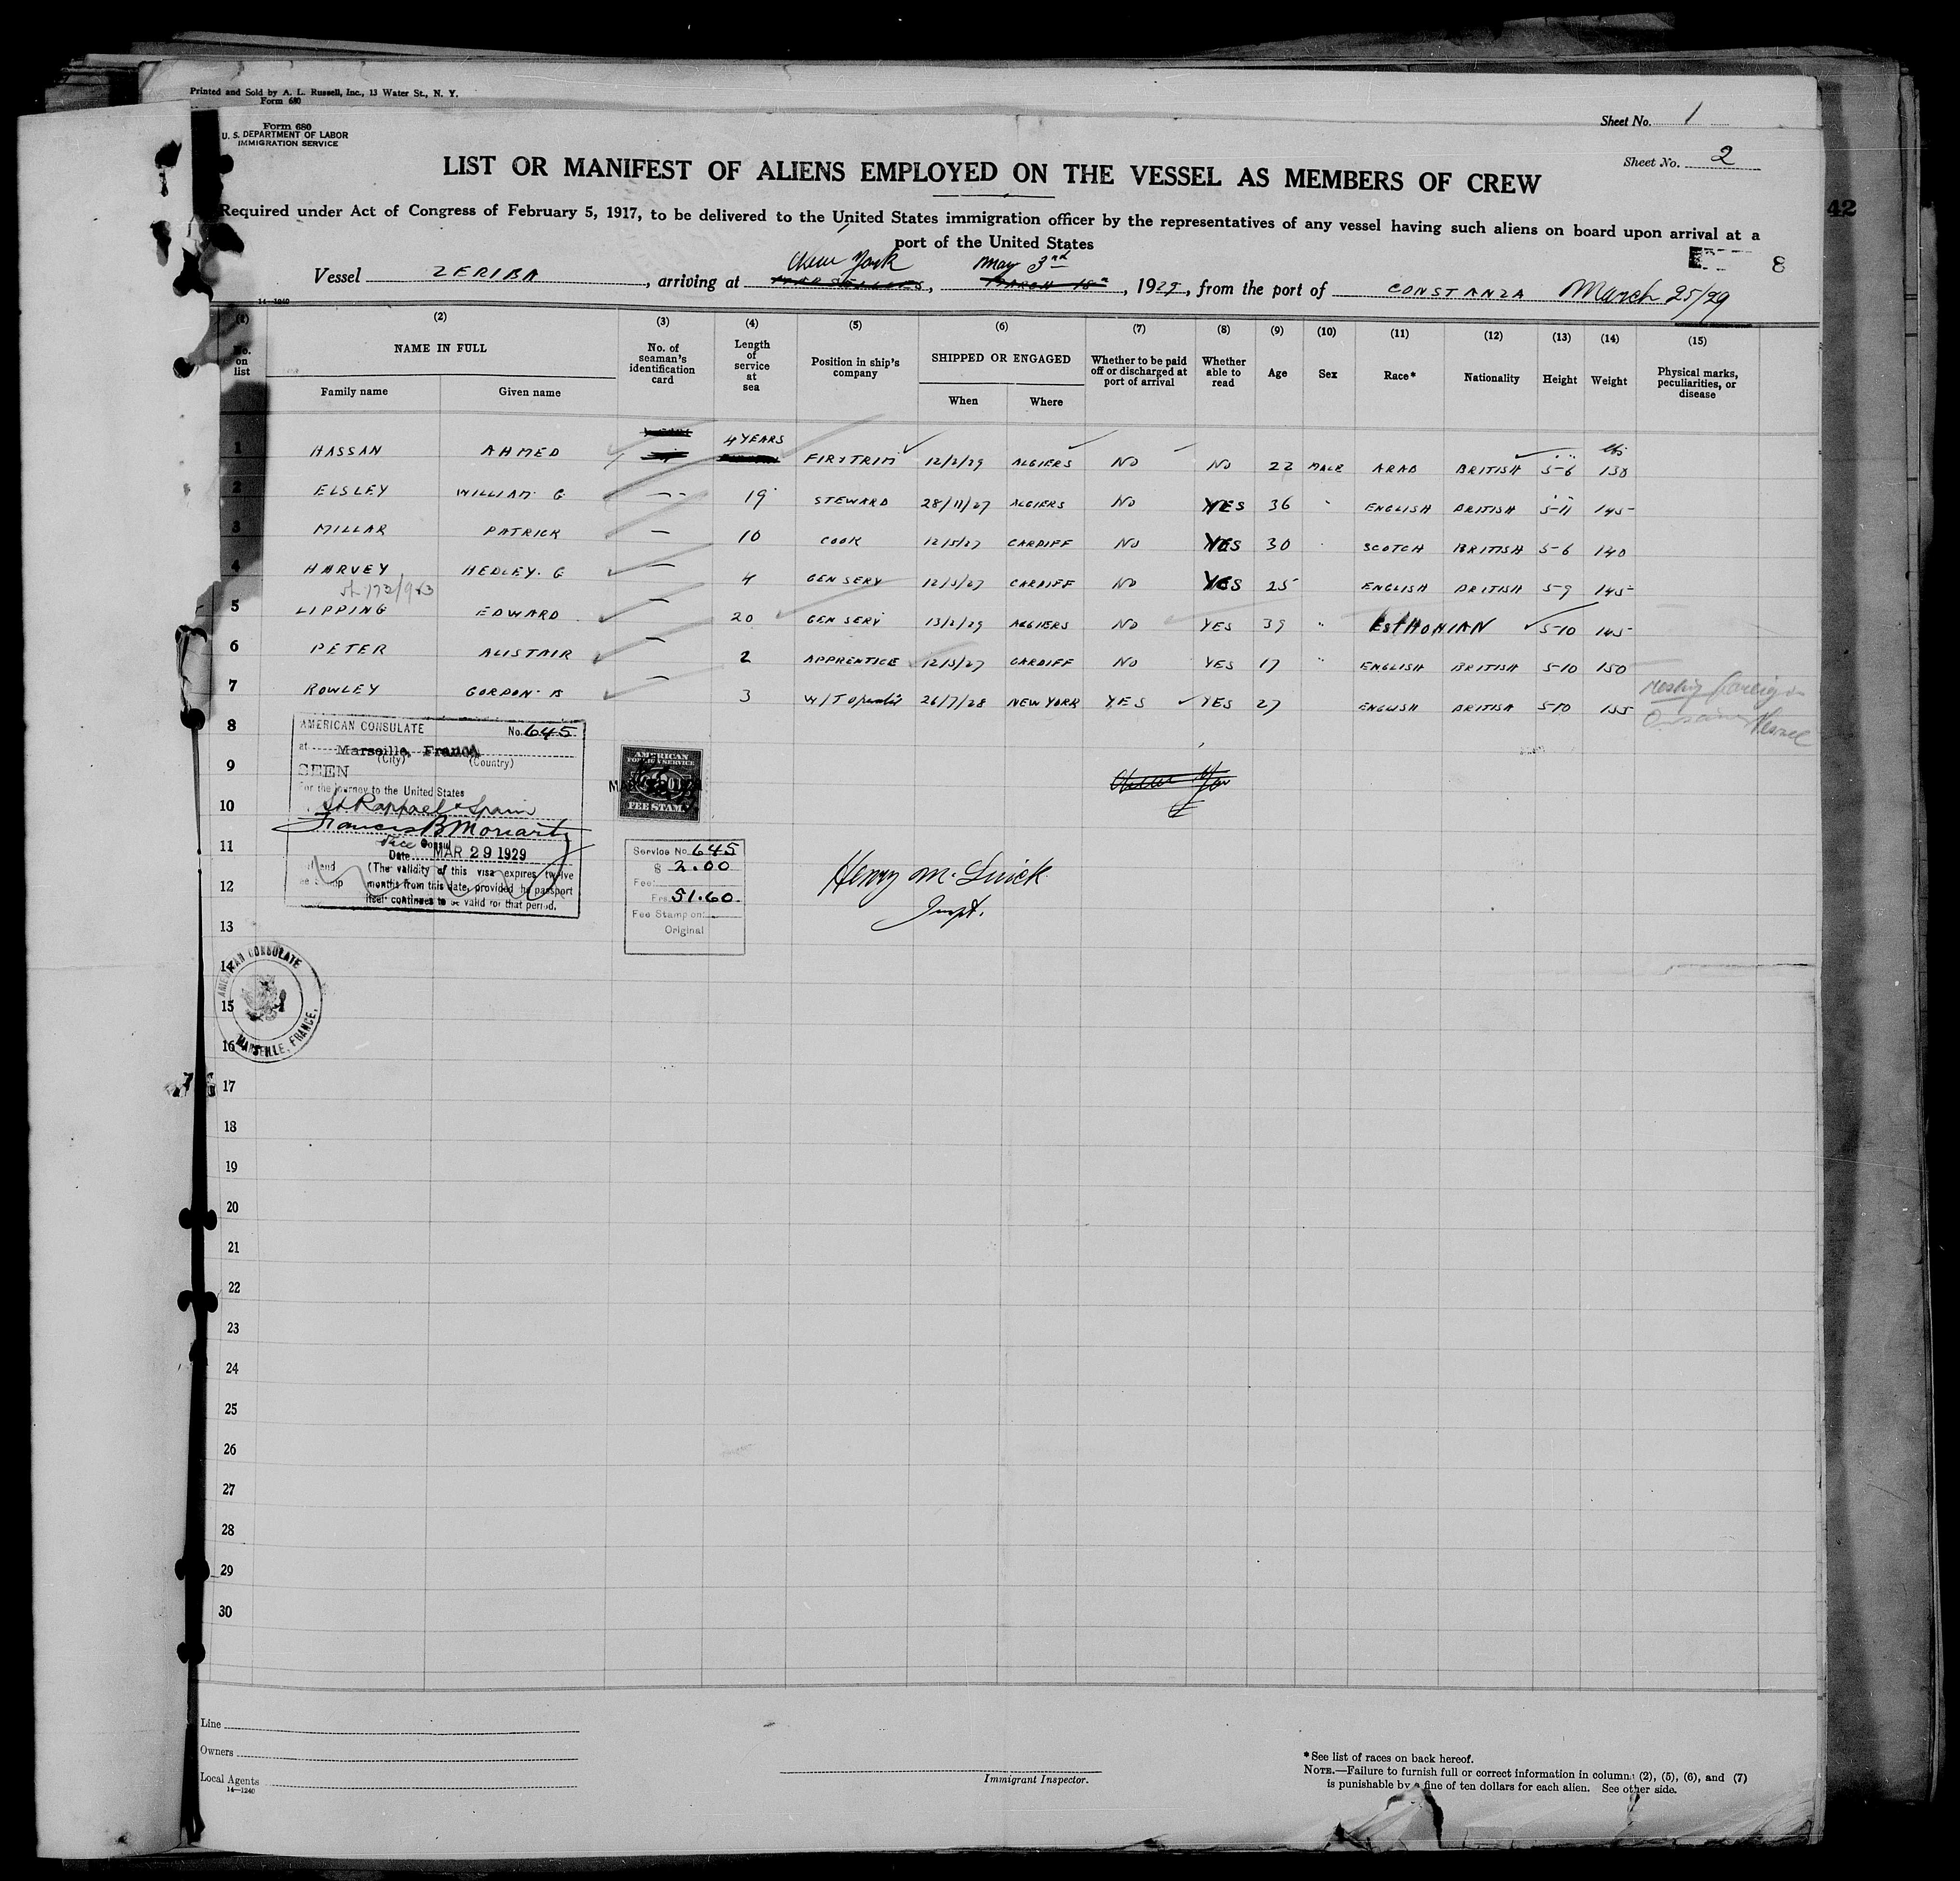 Printed and Sold by A. L. Russell, Inc., 13 Water St., N. Y.
Form 680
Sheet No. 1
Form 680
U. S. DEPARTMENT OF LABOR
IMMIGRATION SERVICE
Sheet No. 2
LIST OR MANIFEST OF ALIENS EMPLOYED ON THE VESSEL AS MEMBERS OF CREW
42
Required under Act of Congress of February 5, 1917, to be delivered to the United States immigration officer by the representatives of any vessel having such aliens on board upon arrival at a
port of the United States
8
New York May 3rd
Vessel ZERIBA, arriving at MARSEILLES, MARCH 18, 1929, from the port of CONSTANZA March 25/29
14-1240
(1) (2) (3) (4) (5) (6) (7) (8) (9) (10) (11) (12) (13) (14) (15)
No. on list NAME IN FULL No. of seaman's identification card Length of service at sea Position in ship's company SHIPPED OR ENGAGED Whether to be paid off or discharged at port of arrival Whether able to read Age Sex Race* Nationality Height Weight Physical marks, peculiarities, or disease
Family name Given name When Where
1 HASSAN AHMED 4 YEARS FIR & TRIM 12/2/29 ALGIERS NO NO 22 MALE ARAB BRITISH 5-6 lbs 130
2 ELSLEY WILLIAM G — 19 STEWARD 28/11/27 ALGIERS NO YES 36 " ENGLISH BRITISH 5-11 145
3 MILLAR PATRICK — 10 COOK 12/5/27 CARDIFF NO YES 30 " SCOTCH BRITISH 5-6 140
4 HARVEY HEDLEY. G — 4 GEN SERV 12/5/27 CARDIFF NO YES 25 ENGLISH BRITISH 5-9 145
5 LIPPING EDWARD — 20 GEN SERV 13/2/29 ALGIERS NO YES 39 " ESTHONIAN 5-10 145
6 PETER ALISTAIR — 2 APPRENTICE 12/5/27 CARDIFF NO YES 17 " ENGLISH BRITISH 5-10 150
7 ROWLEY GORDON. B — 3 W/T Operator 26/7/28 NEW YORK YES YES 27 ENGLISH BRITISH 5-10 155
Vessel
8
9
10
11
12
13
14
15
16
17
18
19
20
21
22
23
24
25
26
27
28
29
30
AMERICAN CONSULATE No. 645
at Marseille, France
(City) (Country)
SEEN
For the journey to the United States
St Raphael & Spain
Francis B Moriarty
Vice Consul
Date MAR 29 1929
(The validity of this visa expires twelve
months from this date, provided he passport
itself continues to be valid for that period.
AMERICAN
FOREIGN SERVICE
FEE STAMP
Service No. 645
$ 2.00
Fee:
Frs. 51.60
Fee Stamp on:
Original
Henry M.
Inspt.
AMERICAN CONSULATE
MARSEILLE, FRANCE.
Line
Owners
Local Agents
14-1240
Immigrant Inspector.
*See list of races on back hereof.
NOTE.—Failure to furnish full or correct information in columns (2), (5), (6), and (7)
is punishable by a fine of ten dollars for each alien. See other side.